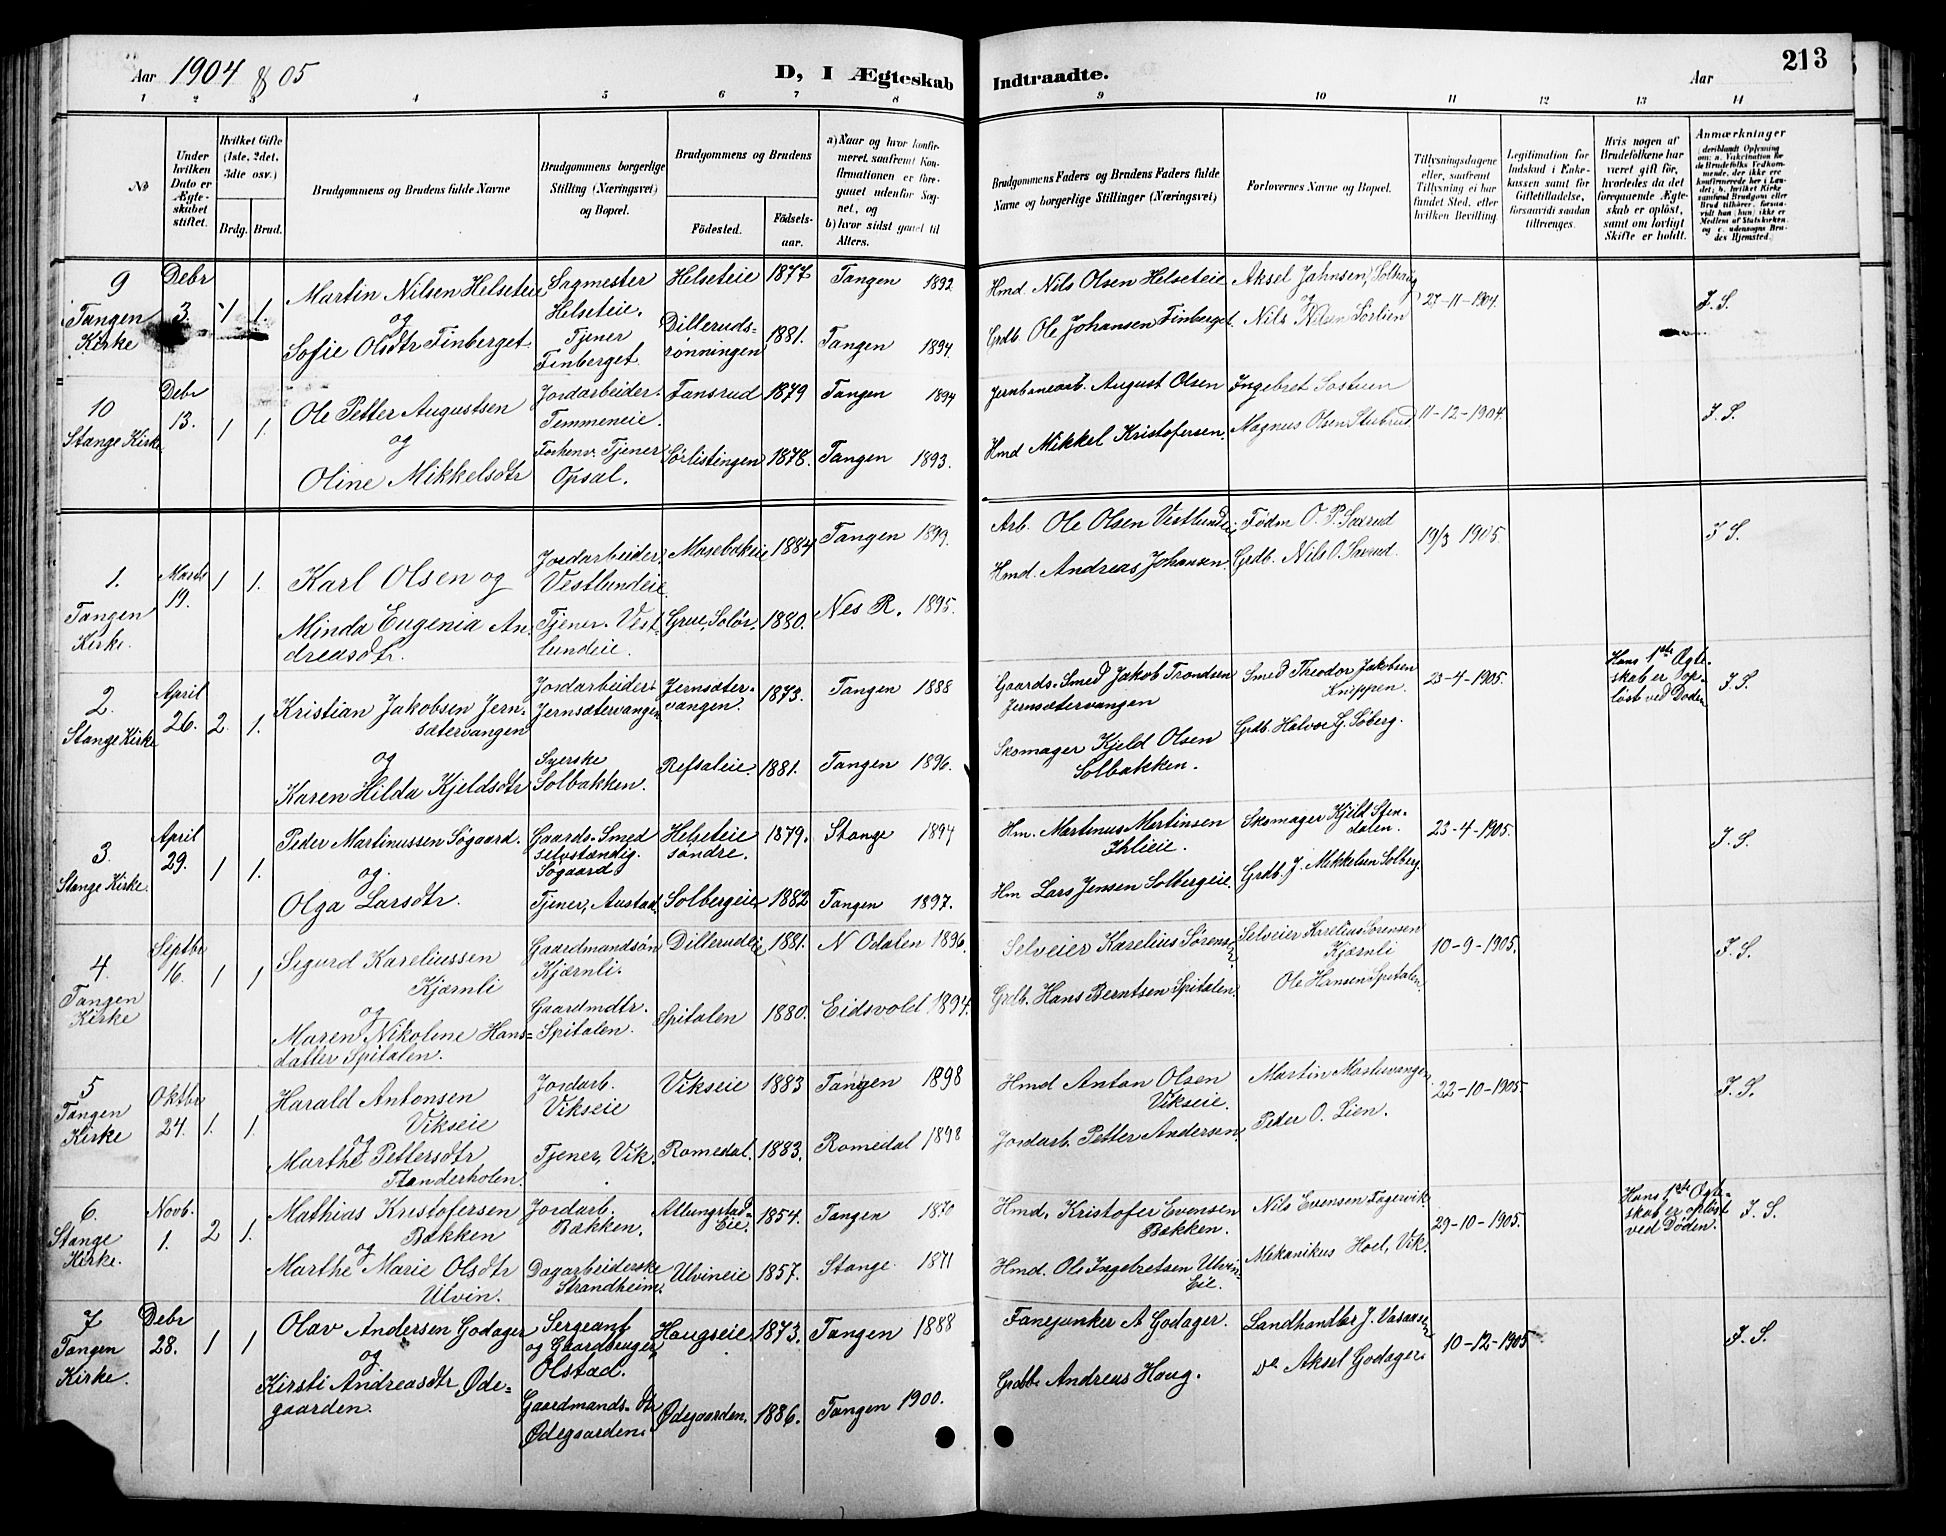 Aar 1904 & 05
D, I Ægteskab
Indtraadte.
Aar
213
1 2 3 4 5 6 7 8 9 10 11 12 13 14
No
Under hvilken Dato er Ægteskabet stiftet.
Hvilket Gifte (1ste, 2det, 3dte osv.)
Brdg. Brud.
Brudgommens og Brudens fulde Navne
Brudgommens borgerlige Stilling (Næringsvei) og Bopæl.
Brudgommens og Brudens
Fødested.
Fødselsaar.
a) Naar og hvor konfirmeret, saafremt Konfirmationen er foregaaet udenfor Sognet, og
b) hvor sidst gaaet til Alters.
Brudgommens Faders og Brudens Faders fulde Navne og borgerlige Stillinger (Næringsvei)
Forlovernes Navne og Bopæl.
Tillysningsdagene eller, saafremt Tillysning ei har fundet Sted, efter hvilken Bevilling.
Legitimation for Indskud i Enkekassen samt for Giftetilladelse, forsaavidt saadan tiltrænges.
Hvis nogen af Brudefolkene har været gift før, hvorledes da det foregaaende Ægteskab er opløst, samt om lovligt Skifte er holdt.
Anmærkninger
9 Tangen Kirke
Debr 3. 1 1.
Martin Nilsen Helseteie
og
Sofie Olsdtr Finberget
Sagmester Helseteie.
Tjener Finberget.
Helseteie 1877 Tangen 1892
Dillerudsrønningen 1881. Tangen 1894.
Hmd. Nils Olsen Helseteie
Grdb. Ole Johansen Finberget.
Aksel Jahnsen, Solhaug
og
Nils Nilsen Sørlien
27-11-1904.
J. S.
10 Stange Kirke
Debr 13. 1 1.
Ole Petter Augustsen
og
Oline Mikkelsdtr
Jordarbeider. Temmeneie.
Forhenv. Tjener Opsal.
Fansrud 1879 Tangen 1894
Sørlistingen 1878. Tangen 1893.
Jernbanearb. August Olsen
Hmd Mikkel Kristofersen.
Ingebret Sostuen
Magnus Olsen Stubrud
11-12-1904.
J. S.
1. Tangen Kirke.
Marts 19. 1 1.
Karl Olsen og
Minda Eugenia Andreasdtr.
Jordarbeider. Vestlundeie
Tjener. Vestlundeie.
Mosebækeie 1884 Tangen 1899.
Grue, Solør. 1880. Nes R. 1895.
Arb. Ole Olsen Vestlundeie
Hmd. Andreas Johansen
Fødm O. P. Saxrud
Grdb. Nils O. Saxrud.
19/3 1905.
J S.
2. Stange Kirke
April 26. 2. 1.
Kristian Jakobsen Jernsætervangen
og
Karen Hilda Kjeldsdtr
Jordarbeider. Jernsætervangen
Syerske Solbakken.
Jernsætervangen. 1873. Tangen 1888
Refsaleie. 1881. Tangen 1896.
Gaards-Smed Jakob Trondsen Jernsætervangen
Skomager Kjeld Olsen Solbakken.
Smed Theodor Jakobsen Knippen.
Grdb. Halvor G. Søberg.
23-4-1905.
Hans 1ste Ægteskab er opløst ved Døden
J. S.
3. Stange Kirke.
April 29. 1 1.
Peder Martinussen Søgaard.
og
Olga Larsdtr.
Gaards-Smed selvstændig. Søgaard
Tjener, Austad
Helseteie søndre. 1879. Stange 1894
Solbergeie 1882 Tangen 1897.
Hm. Martinus Martinsen Ihlieie.
Hm Lars Jensen Solbergeie.
Skomager Kjeld Stendalen.
Grdb. J. Mikkelsen Solberg.
23-4-1905.
J. S.
4. Tangen Kirke
Septbr 16. 1 1
Sigurd Kareliussen Kjærnli
og
Maren Nikoline Hansdatter Spitalen.
Gaardmandsøn Kjærnli.
Gaardmdtr. Spitalen.
Dillerudeie 1881. N Odalen 1896.
Spitalen 1880. Eidsvold 1894.
Selveier Karelius Sørensen
Grdb. Hans Berntsen Spitalen.
Selveier Karelius Sørensen Kjærnli
Ole Hansen Spitalen.
10-9-1905.
J. S.
5 Tangen Kirke
Oktbr 24. 1. 1.
Harald Antonsen Vikseie
og
Marthe Pettersdtr Flanderholen.
Jordarb. Vikseie
Tjener, Vik.
Vikseie 1883 Tangen 1898
Romedal. 1883. Romedal 1898
Hmd Anton Olsen Vikseie.
Jordarb. Petter Andersen.
Martin Mostuvangen
Peder O. Lien.
22-10-1905.
J. S.
6. Stange Kirke.
Novb. 1. 2 1.
Mathias Kristofersen Bakken
og
Marthe Marie Olsdtr Ulvin.
Jordarb. Bakken.
Dagarbeiderske Strandheim.
Allungstad Eie. 1854. Tangen 1870
Ulvineie 1857. Stange 1871
Hmd. Kristofer Evensen Bakken.
Hmd. Ole Ingebretsen Ulvin Eie.
Nils Evensen Fagervik.
Mekanikus Hoel, Vik.
29-10-1905.
Hans 1ste Ægteskab er opløst ved Døden.
J. S.
7 Tangen Kirke.
Debr 28. 1 1
Olav Andersen Godager
og
Kirsti Andreasdtr, Ødegaarden.
Sergeant og Gaardbruger, Olstad.
Gaardmands dtr Ødegaarden.
Haugseie 1873. Tangen 1888
Ødegaarden. 1886. Tangen 1900.
Fanejunker A Godager.
Grdbr Andreas Haug.
Landhandler J. Vasaasen
do Aksel Godager.
10-12-1905
J. S.